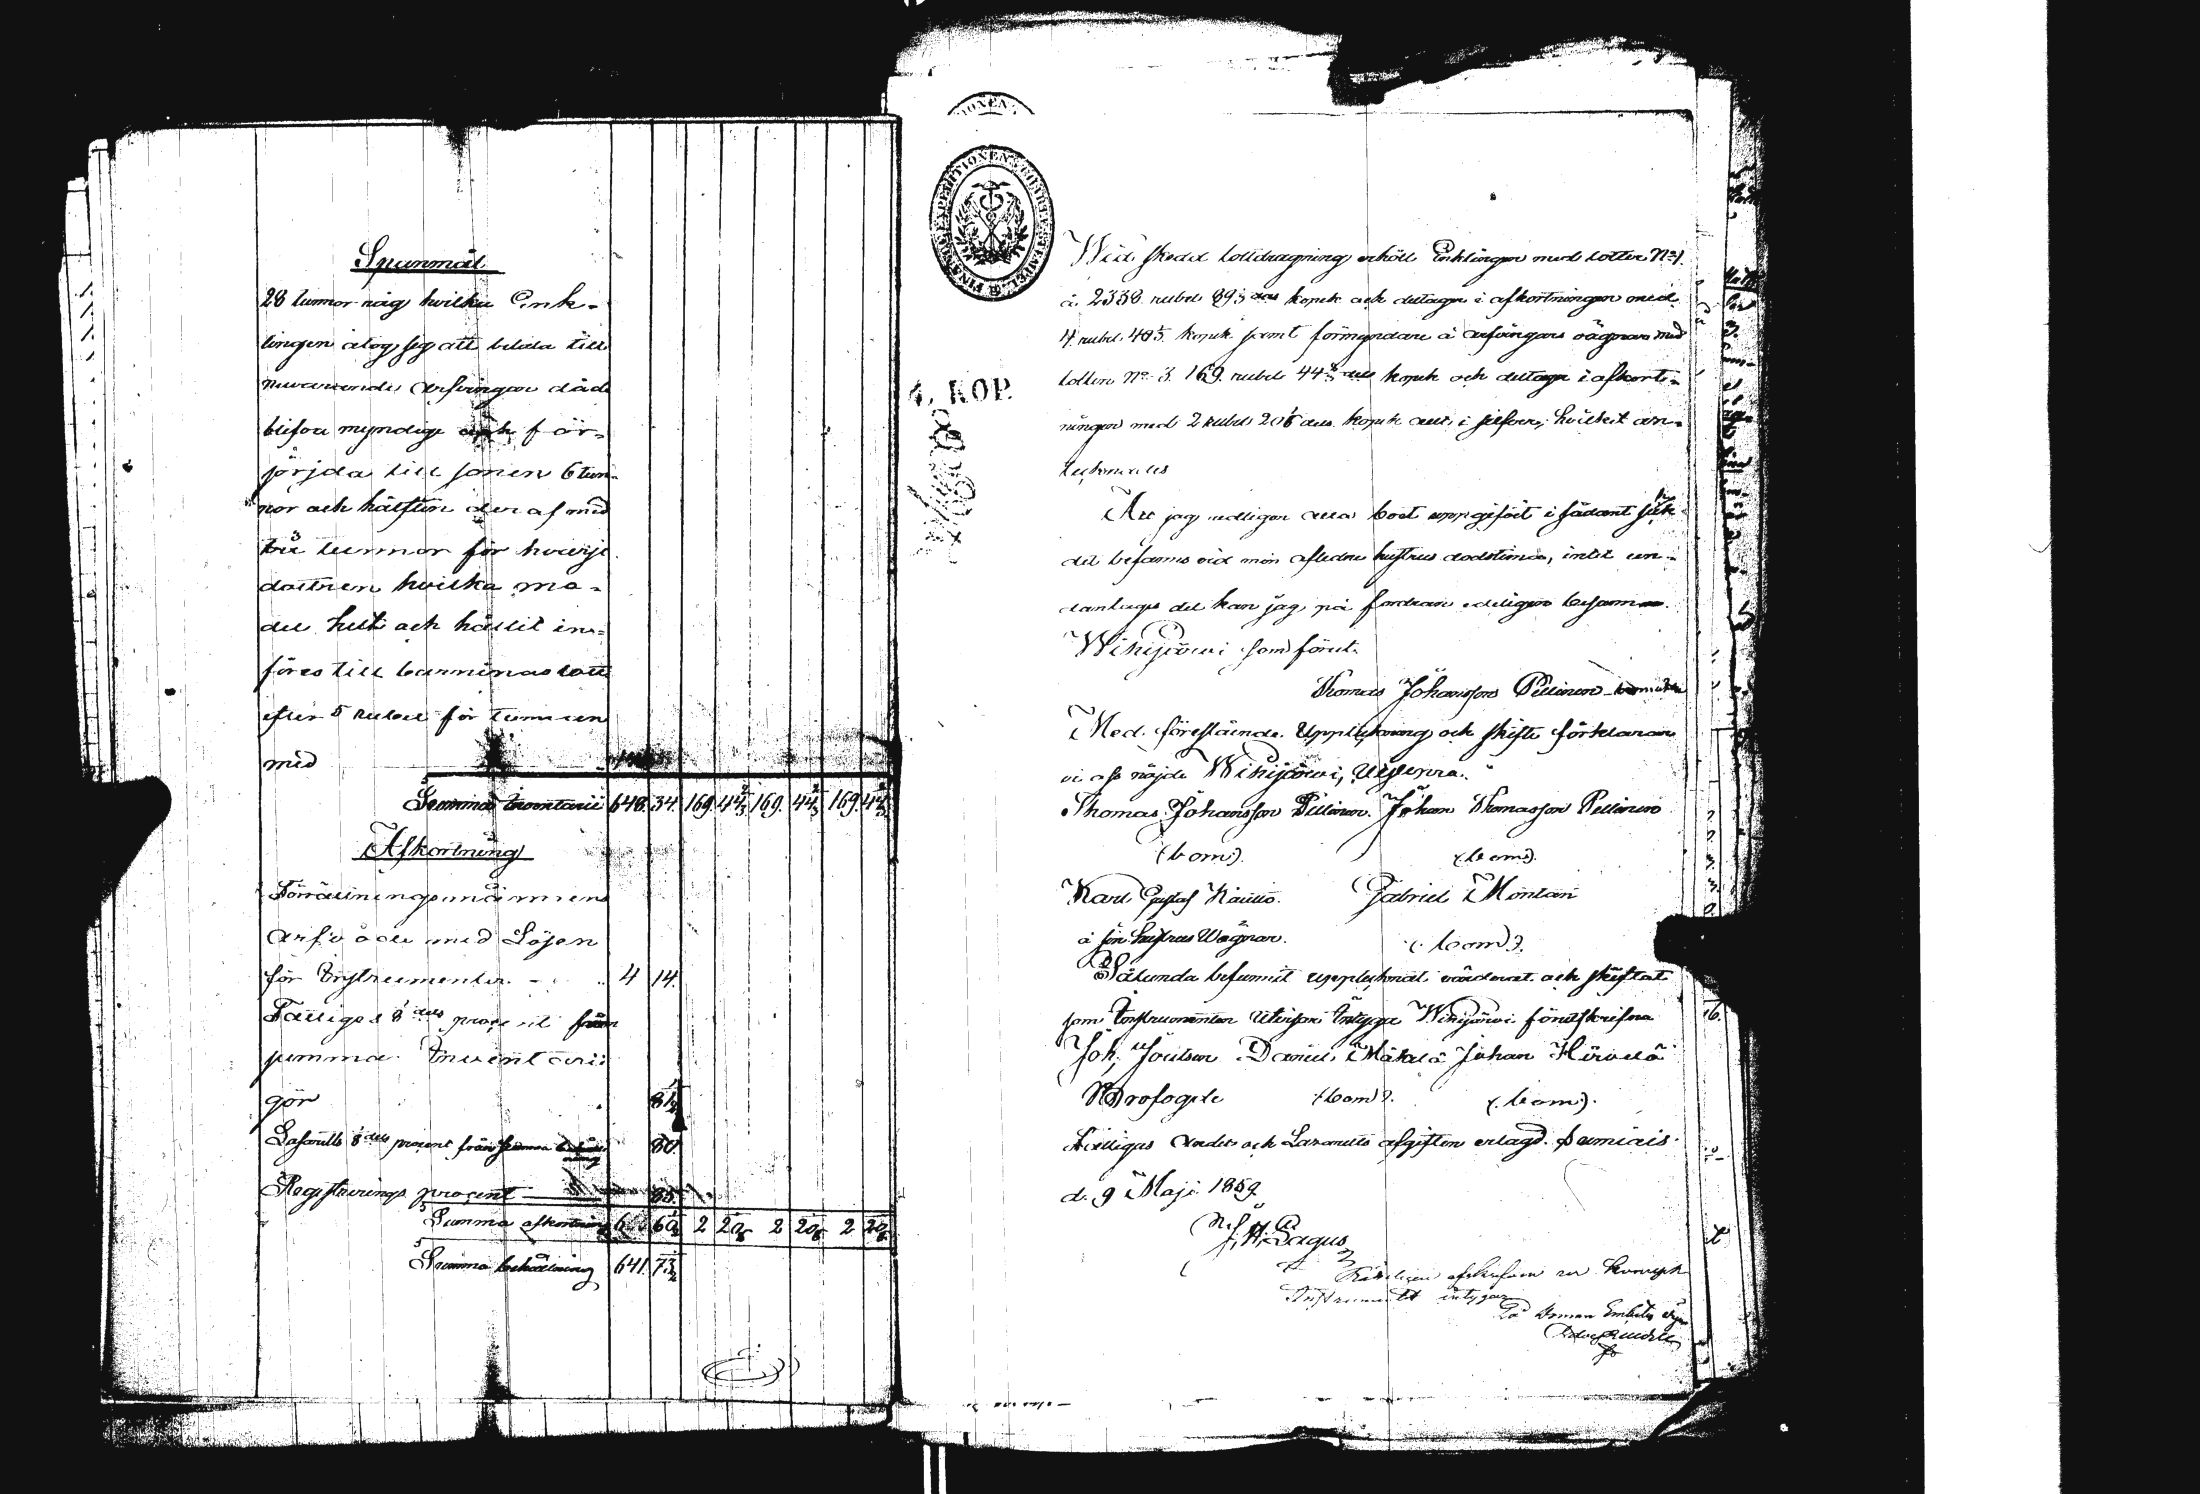 Spanmål
28 tunnor råg hvilka Enk-
lingen åtog sig att betala till
nuvarande arfvingar då de
blifva myndige och för-
sörjda till sonen 6 tun-
nor och hälften der af med
tre tunnor för hvarje
dottren hvilka me-
del helt och hållit in-
föres till barnenas lott
efter 5 rubel för tunnan
med
Summa Inventarii 648. 34. 169. 44 2/3 169. 44 2/3 169. 44 2/3
Afkortning
Förrättningsmännens
arfvode med Lösen
för Instrumenten 4 14.
Fattiges 8dels procent från
summa Inventarii
gör 81 1/2
Lasaretts 8dels procent från summa 80.
Registrerings procent 85.
Summa afkortning 6 60 1/2 2 20 1/6 2 20 1/6 2 20 1/6
Summa behållning 641. 73 1/2
FINANCE EXPEDITIONENS CHARTE STEMPEL
4. KOP.
Wid skedd lottdragning erhöll Enklingen med lotten No 1.
à 2338 rubel kopek och deltager i afkortningen med
4 rubel kopek samt förmyndare å arfvingars vägnar med
lotten No 3. 169. rubel 44 2/3 dels kopek och deltager i afkort-
ningen med 2 rubel 20 1/6 dels kopek allt i silfver, hvilket an-
tecknades
Att jag redligen alla boet uppgifvit i sådant skick
det befanns vid min aflidne hustrus dödstimma, intet un-
dantaget det kan jag på fordran edeligen besanna.
Wikijärvi som förut.
Thomas Johansson Pellinen
Med förestående Uppteckning och skifte förklarar
vi oss nöjde Wikijärvi, Utsupra.
Thomas Johansson Pellinen. Johan Thomasson Pellinen
(bom). (bom).
Karl Gustaf Gabriel Montari
å sin hustrus Wägnar. (bom).
Sålunda befunnit upptecknat värderat och skiftat
som Instrumenten utvisar Intyga Wikijärvi förutskrifne
Joh. Joutsen Daniel Mäkelä Johan Hirvelä
Brofogde (bom). (bom).
Fattigas Andel och Lazaretts afgiften erlagd. Pumiais
d. 9 Maji 1859
Pagus
afskrifven
Instrumentet intygar
På Domare Embetets Vägnar